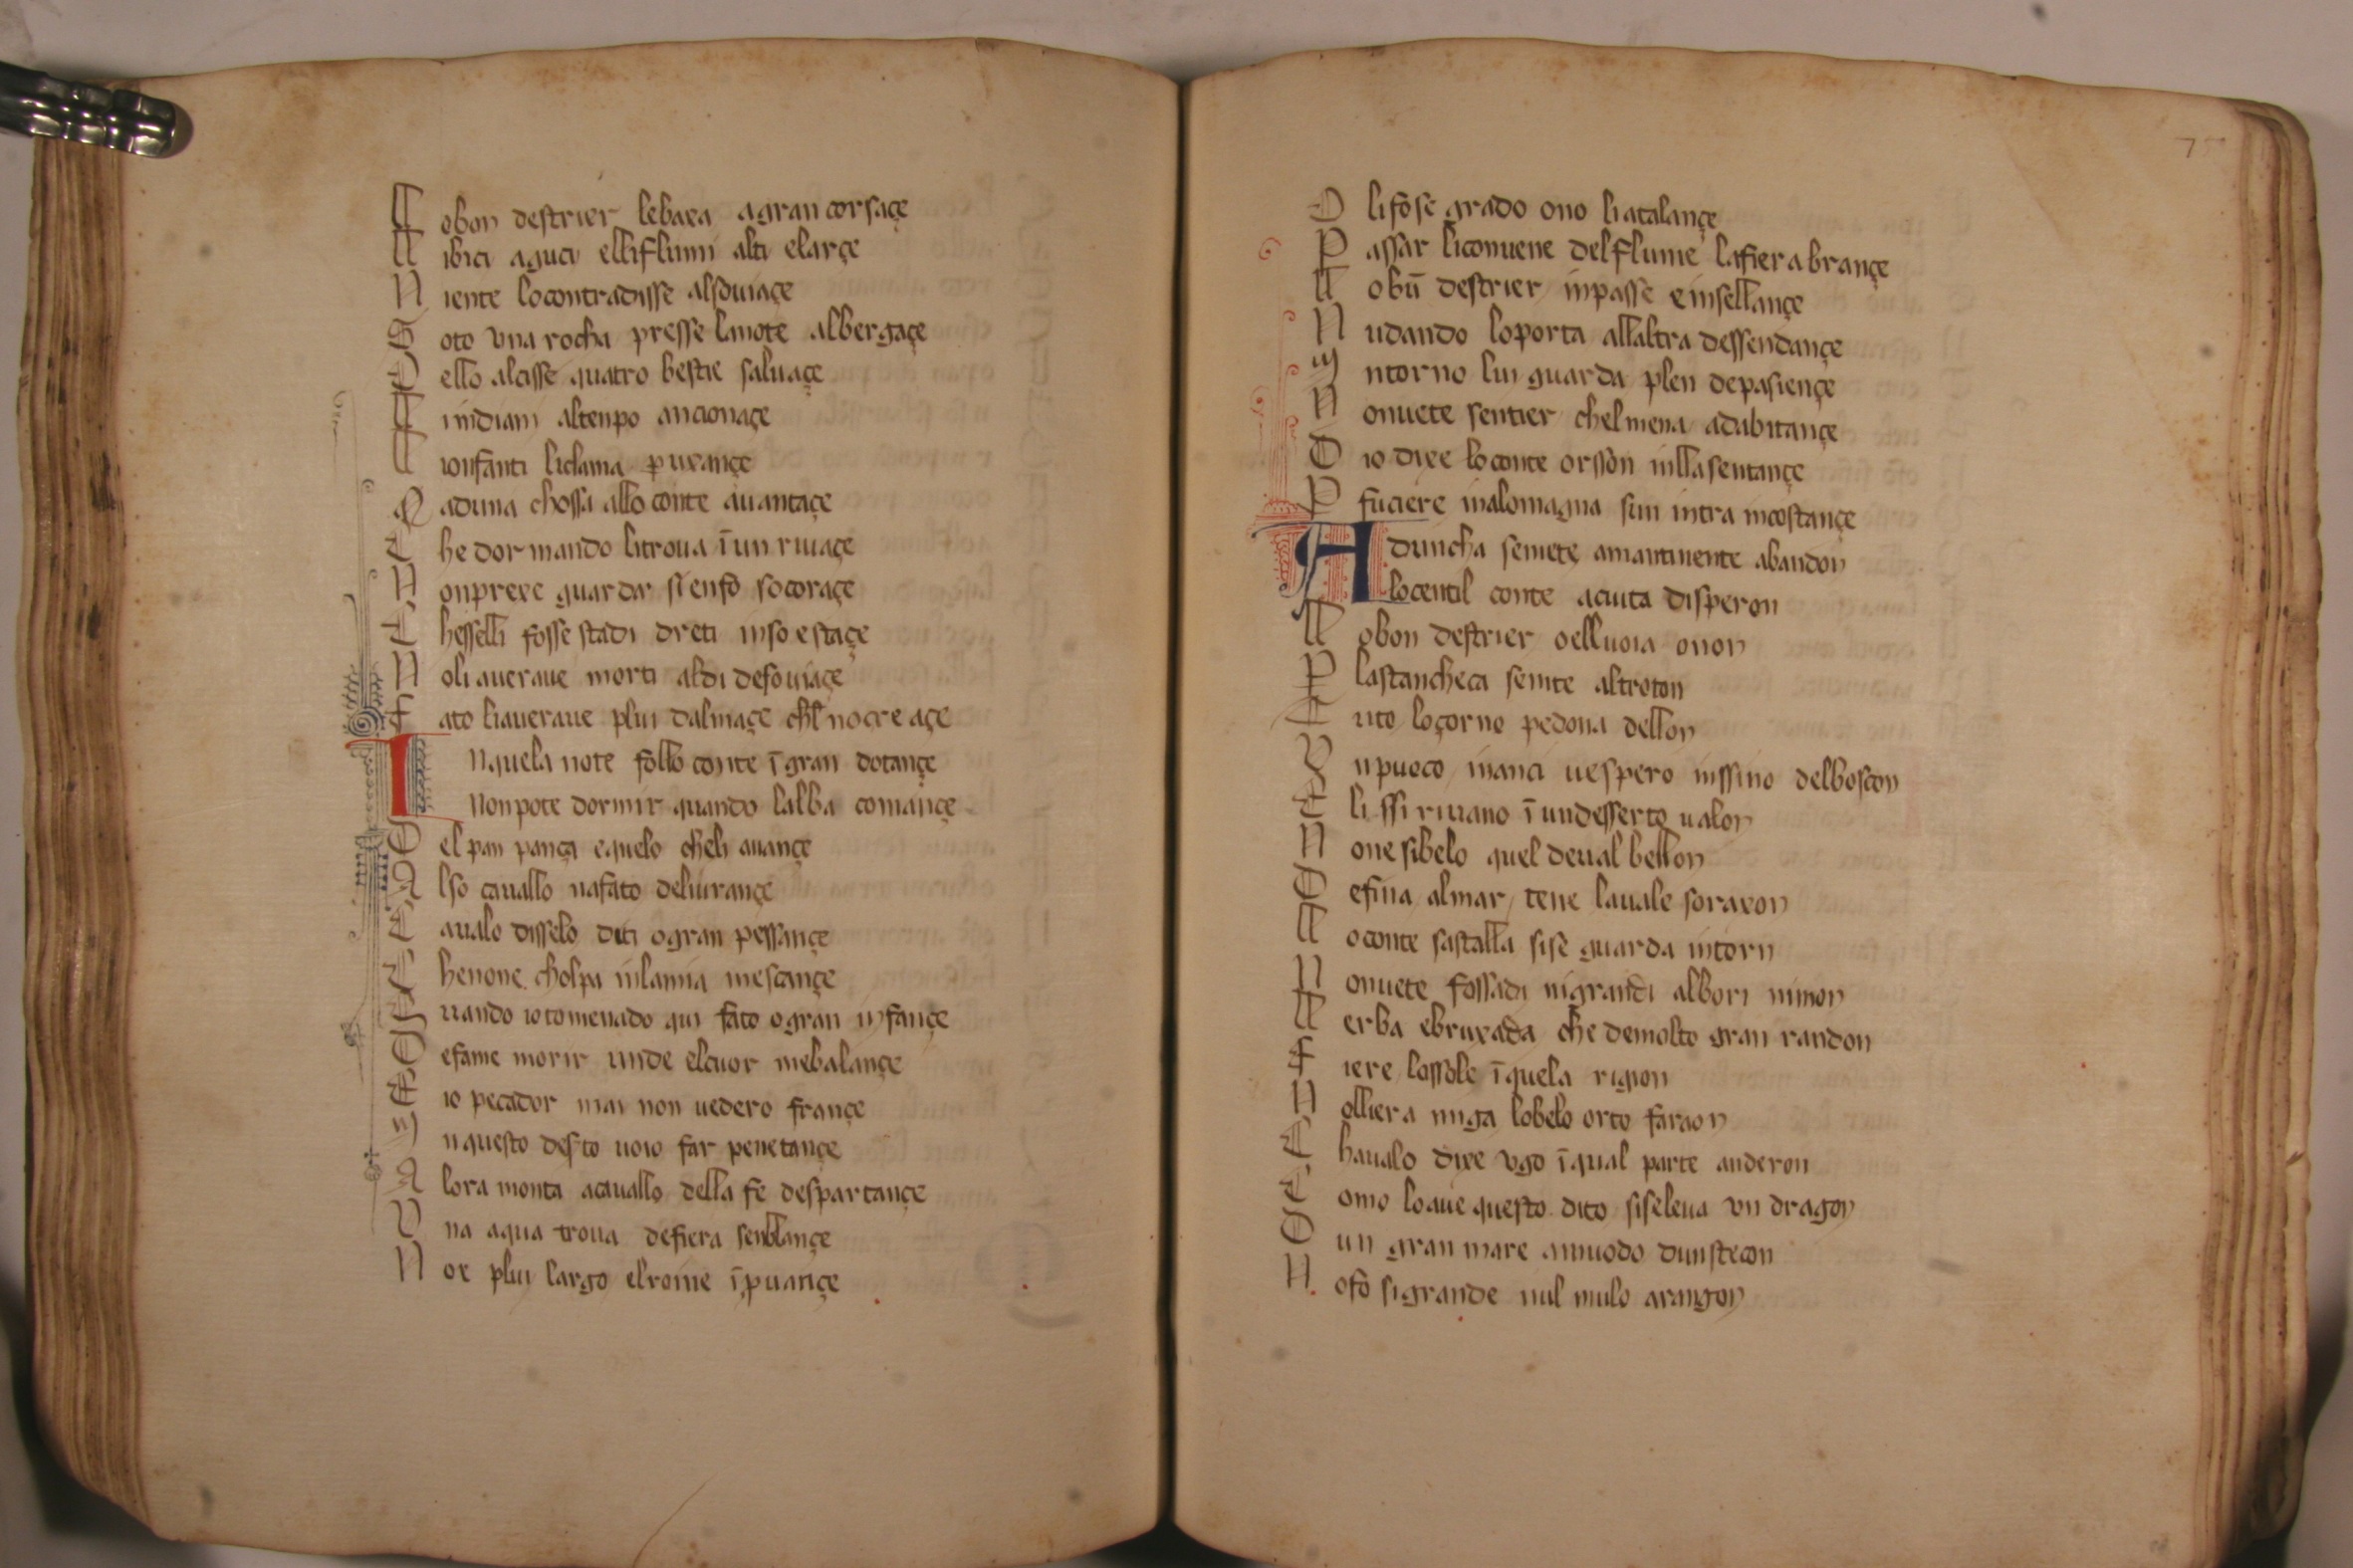 L obon destrier lebaxa agran corsaçe
L ibici aguci elli flumi alti elarçe
N iente locontradisse alsouiaçe
S oto vna rocha presse lanote albergaçe
D ello alcisse quatro bestie saluaçe
L indiani altenpo ancionaçe
L ionfanti liclama p uxançe
D aduna chossa allo conte auantaçe
C he dormando litroua ĩ un riuaçe
N onprexe guarda si enfo socoraçe
C hesselli fosse stadi dreti inso estaçe
N oli aueraue morti aldi desouiaçe
F ato liaueraue plui dalmaçe chel nocreaçe
I Nquela note follo conte ĩ gran dotançe
Nonpote dormir quando lalba comançe
D el pan pança equelo cheli auançe
A lso cauallo nafato deliurançe
C aualo disselo diti ogran pessançe
C henone cholpa inlamia mescançe
Q uando io tomenado qui fato ogran infançe
D efame morir unde elcuor mebalançe
E io pecador mai non uedero françe
I nquesto desto uoio far penetançe
A lora monta acauallo della fe despartançe
V na aqua troua defiera senblançe
N ox plui largo elrome ĩ puançe
75
D lifose grado ono liatalançe
P assar liconuene delflume lafierabrançe
L obũ destrier inpasse einsellançe
N udando loporta allaltra dessendançe
I ntorno lui guarda plen depasiençe
N onuete sentier chelmena adabitançe
D io dixe loconte orsson inllasentançe
P fuciere inalomagna sun intra incostançe
A duncha semete amantinente abandon
locentil conte aciuta disperon
L obon destrier oelluoia onon
P lastancheca semte altroton
T uto loçorno pedona dellon
V npuoco inanci uespero inssino delboscon
E li ssi riuano ĩ undesserto ualon
N one sibelo quel deual bellon
D efina almar tene lauale soraxon
L oconte sastalla sise guarda intorn
N onuete fossadi nigrandi albori ninon
L erba ebruxada che demolto gran randon
F iere lossole ĩ quela rigion
N olliera miga lobelo orto faraon
C haualo dixe vgo ĩ qual parte anderon
C omo loaue questo dito siseleua vn dragon
D un gran mare amuodo dunstecon
N ofo sigrande nul mulo arangon